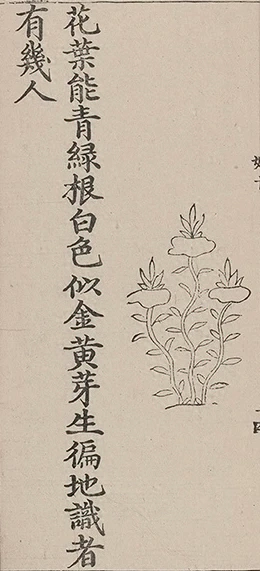 花葉能青綠根白色似金黃芽生徧地識者
有幾人